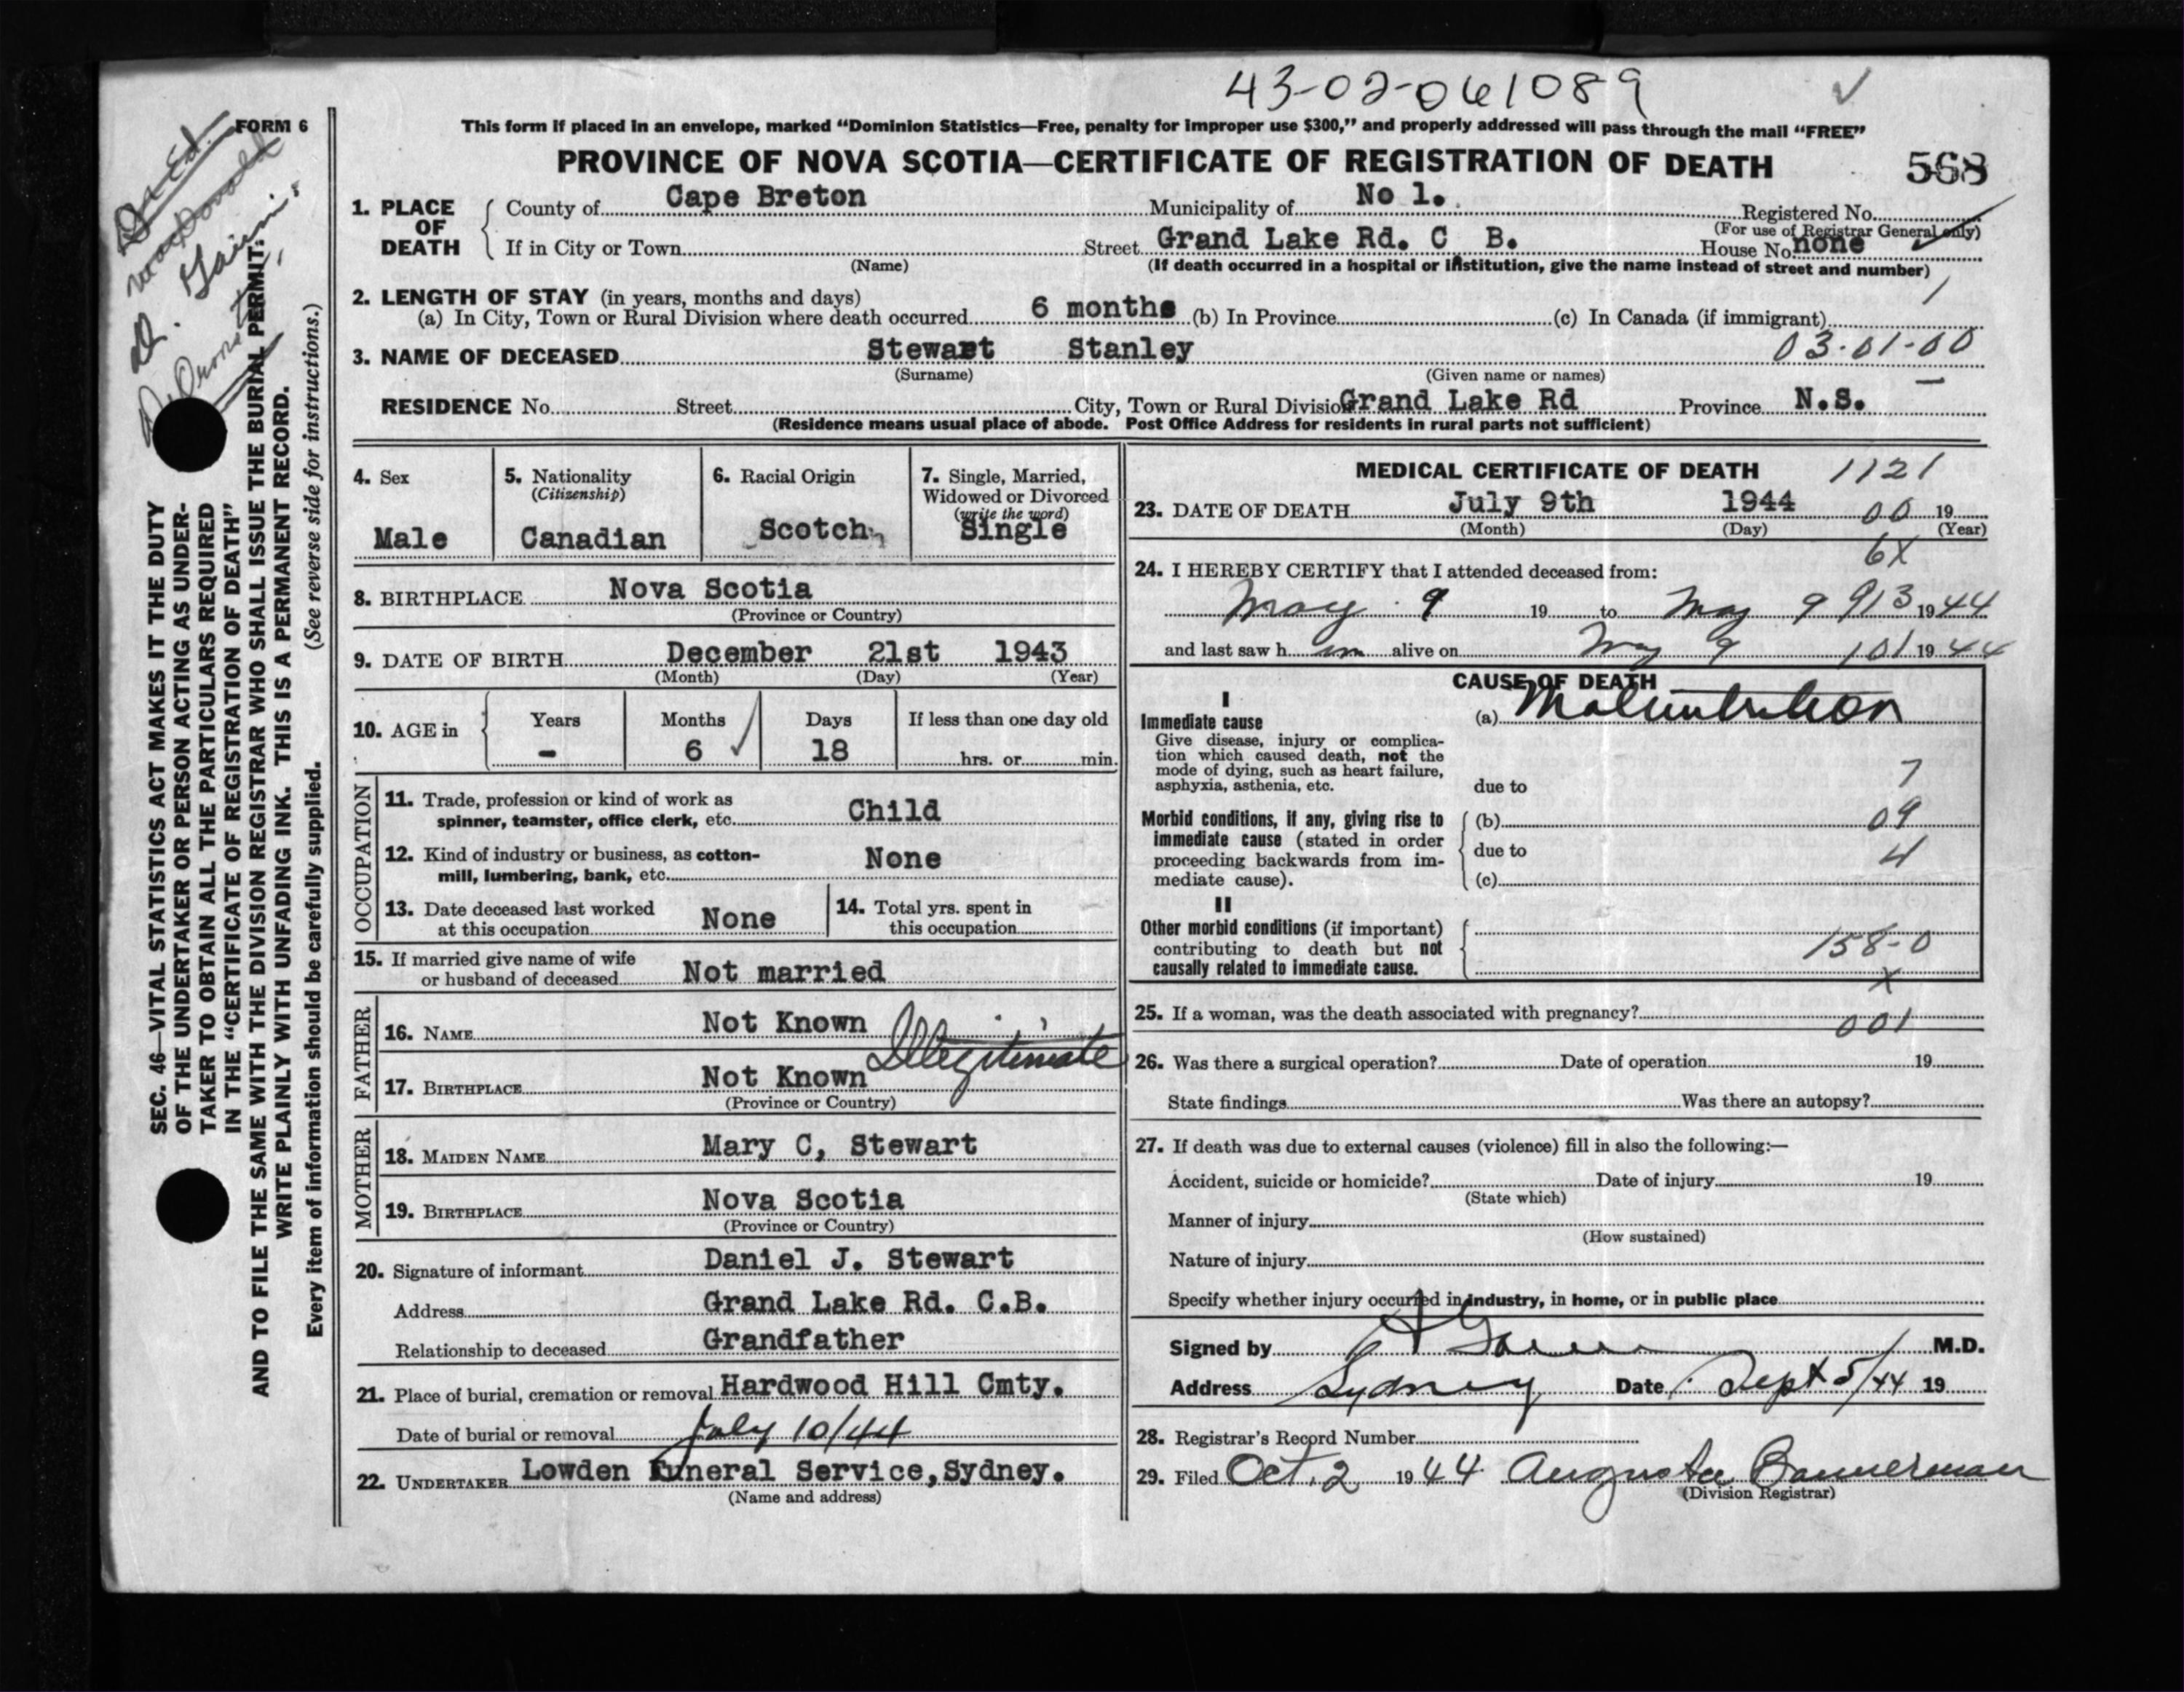 43-02-061089
FORM 6
This form if placed in an envelope, marked “Dominion Statistics—Free, penalty for improper use $300,” and properly addressed will pass through the mail “FREE”
PROVINCE OF NOVA SCOTIA—CERTIFICATE OF REGISTRATION OF DEATH
568
1. PLACE OF DEATH
County of Cape Breton Municipality of No 1. Registered No.
(For use of Registrar General only)
If in City or Town Street Grand Lake Rd. C B. House No. none
(Name) (If death occurred in a hospital or institution, give the name instead of street and number)
2. LENGTH OF STAY (in years, months and days)
(a) In City, Town or Rural Division where death occurred 6 months (b) In Province (c) In Canada (if immigrant)
3. NAME OF DECEASED Stewart Stanley 03-01-00
(Surname) (Given name or names)
RESIDENCE No. Street City, Town or Rural Division Grand Lake Rd Province N.S.
(Residence means usual place of abode. Post Office Address for residents in rural parts not sufficient)
4. Sex
Male
5. Nationality
(Citizenship)
Canadian
6. Racial Origin
Scotch
7. Single, Married,
Widowed or Divorced
(write the word)
Single
8. BIRTHPLACE Nova Scotia
(Province or Country)
9. DATE OF BIRTH December 21st 1943
(Month) (Day) (Year)
10. AGE in
Years Months Days If less than one day old
- 6 18 hrs. or min.
OCCUPATION
11. Trade, profession or kind of work as
spinner, teamster, office clerk, etc. Child
12. Kind of industry or business, as cotton-
mill, lumbering, bank, etc. None
13. Date deceased last worked
at this occupation None
14. Total yrs. spent in
this occupation
15. If married give name of wife
or husband of deceased Not married
FATHER
16. NAME Not Known
Illegitimate
17. BIRTHPLACE Not Known
(Province or Country)
MOTHER
18. MAIDEN NAME Mary C, Stewart
19. BIRTHPLACE Nova Scotia
(Province or Country)
20. Signature of informant Daniel J. Stewart
Address Grand Lake Rd. C.B.
Relationship to deceased Grandfather
21. Place of burial, cremation or removal Hardwood Hill Cmty.
Date of burial or removal July 10/44
22. UNDERTAKER Lowden Funeral Service, Sydney.
(Name and address)
MEDICAL CERTIFICATE OF DEATH 1121
23. DATE OF DEATH July 9th 1944 00 19
(Month) (Day) (Year)
6X
24. I HEREBY CERTIFY that I attended deceased from:
May 9 19 to May 9 913 1944
and last saw h im alive on May 9 101 19 44
CAUSE OF DEATH
I
Immediate cause
Give disease, injury or complica-
tion which caused death, not the
mode of dying, such as heart failure,
asphyxia, asthenia, etc.
(a) Malnutrition
due to 7
Morbid conditions, if any, giving rise to
immediate cause (stated in order
proceeding backwards from im-
mediate cause).
(b) 09
due to 4
(c)
II
Other morbid conditions (if important)
contributing to death but not
causally related to immediate cause.
158-0
X
25. If a woman, was the death associated with pregnancy?
001
26. Was there a surgical operation? Date of operation 19
State findings Was there an autopsy?
27. If death was due to external causes (violence) fill in also the following:—
Accident, suicide or homicide? Date of injury 19
(State which)
Manner of injury
(How sustained)
Nature of injury
Specify whether injury occurred in industry, in home, or in public place
Signed by M.D.
Address Sydney Date Sept 5/44 19
28. Registrar's Record Number
29. Filed Oct. 2 1944 Augusta Bannerman
(Division Registrar)
SEC. 46—VITAL STATISTICS ACT MAKES IT THE DUTY
OF THE UNDERTAKER OR PERSON ACTING AS UNDER-
TAKER TO OBTAIN ALL THE PARTICULARS REQUIRED
IN THE “CERTIFICATE OF REGISTRATION OF DEATH”
AND TO FILE THE SAME WITH THE DIVISION REGISTRAR WHO SHALL ISSUE THE BURIAL PERMIT.
WRITE PLAINLY WITH UNFADING INK. THIS IS A PERMANENT RECORD.
Every item of information should be carefully supplied. (See reverse side for instructions.)